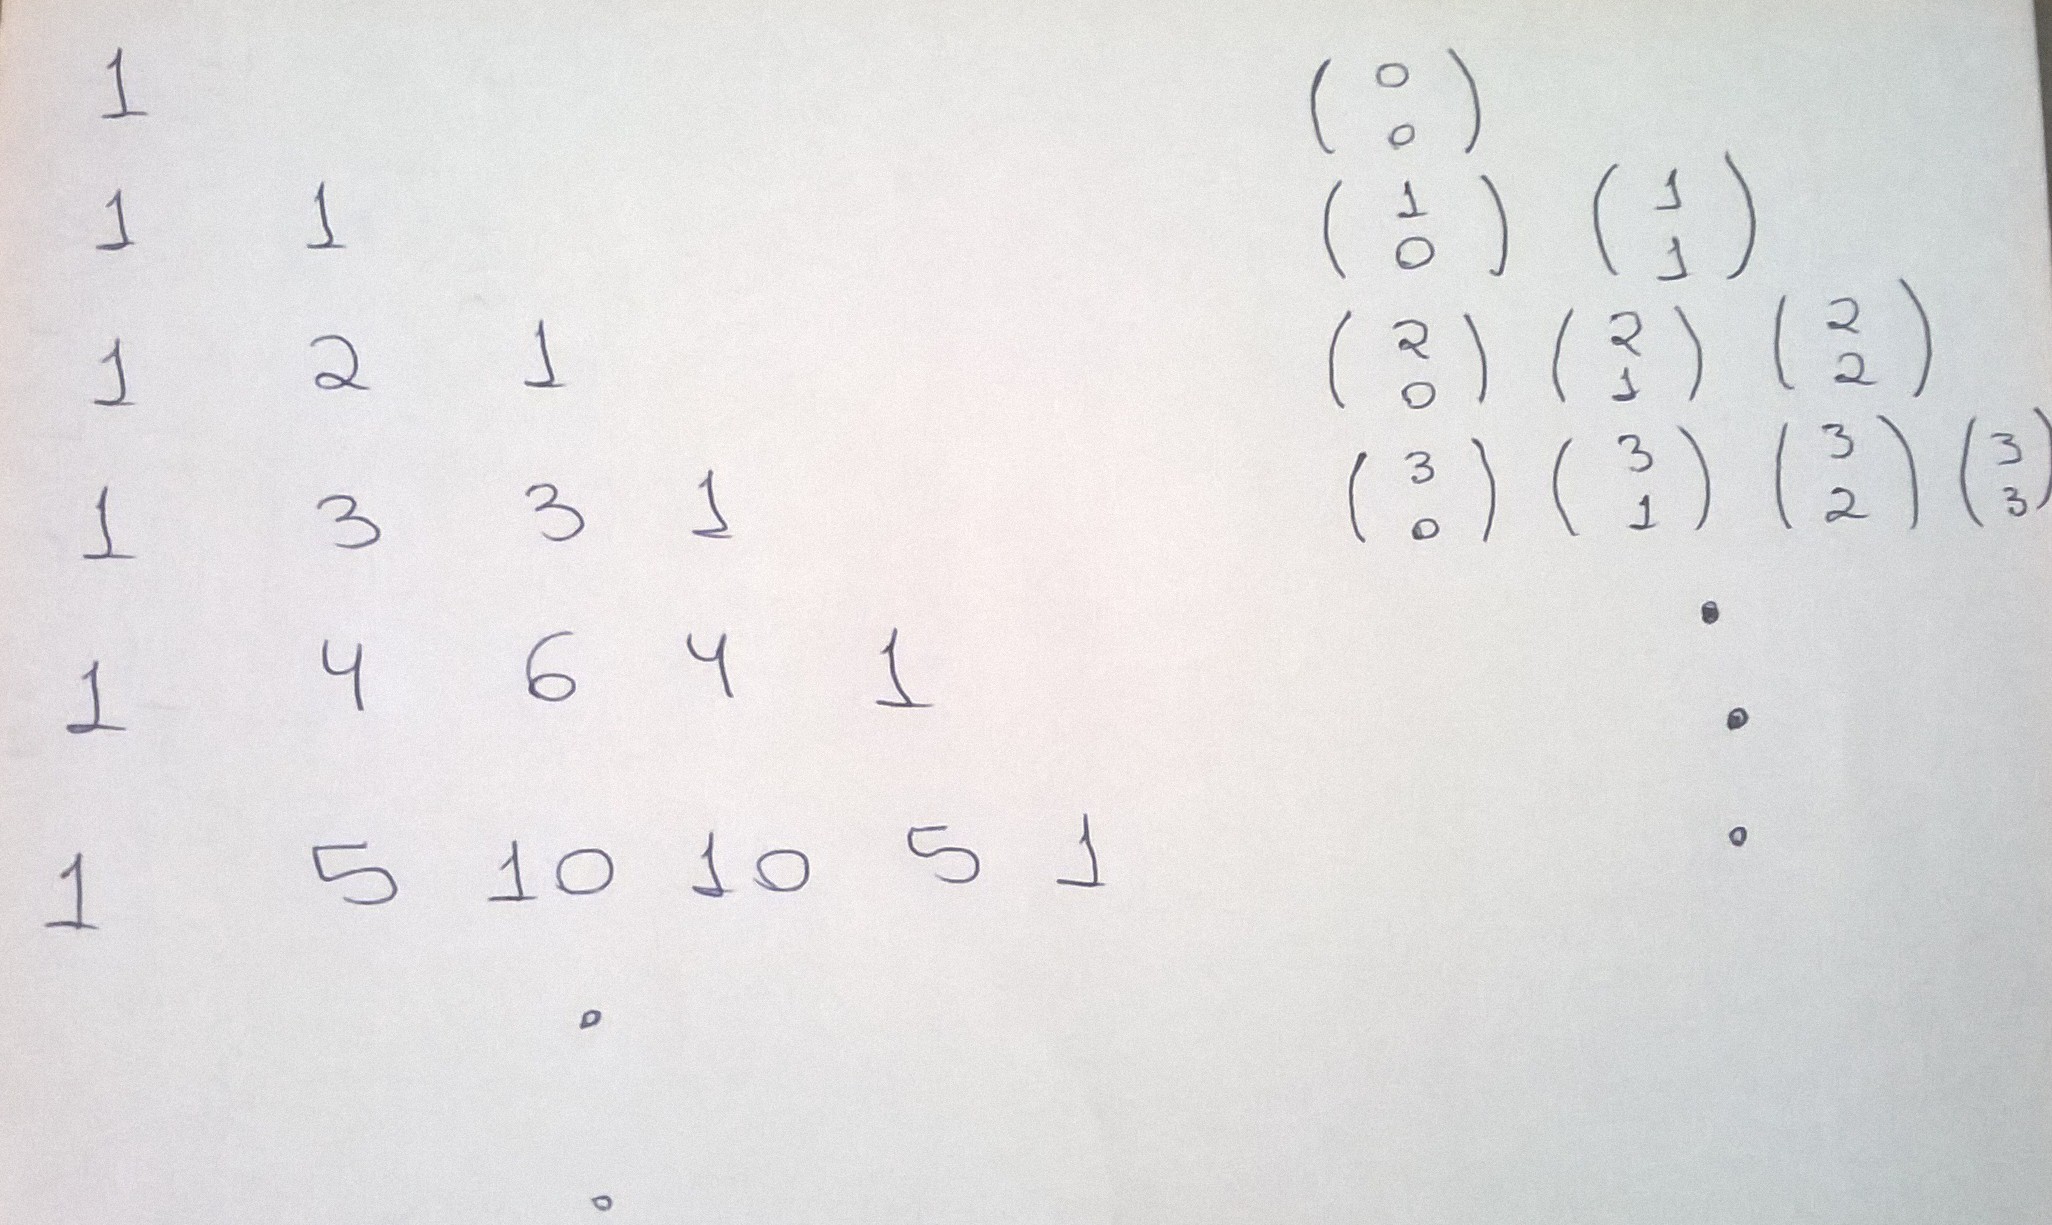 1
1 1
1 2 1
1 3 3 1
1 4 6 4 1
1 5 10 10 5 1
.
.
(0 0)
(1 0) (1 1)
(2 0) (2 1) (2 2)
(3 0) (3 1) (3 2) (3 3)
.
.
.